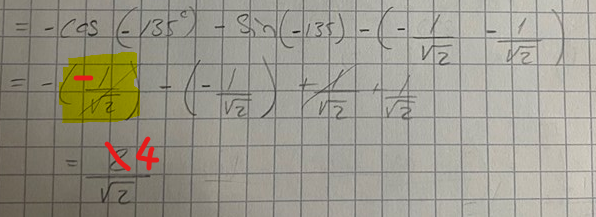 = -cos(-135°) - sin(-135) - (-1/√2 - 1/√2)
= -(-1/√2) - (-1/√2) + 1/√2 + 1/√2
= 4/√2